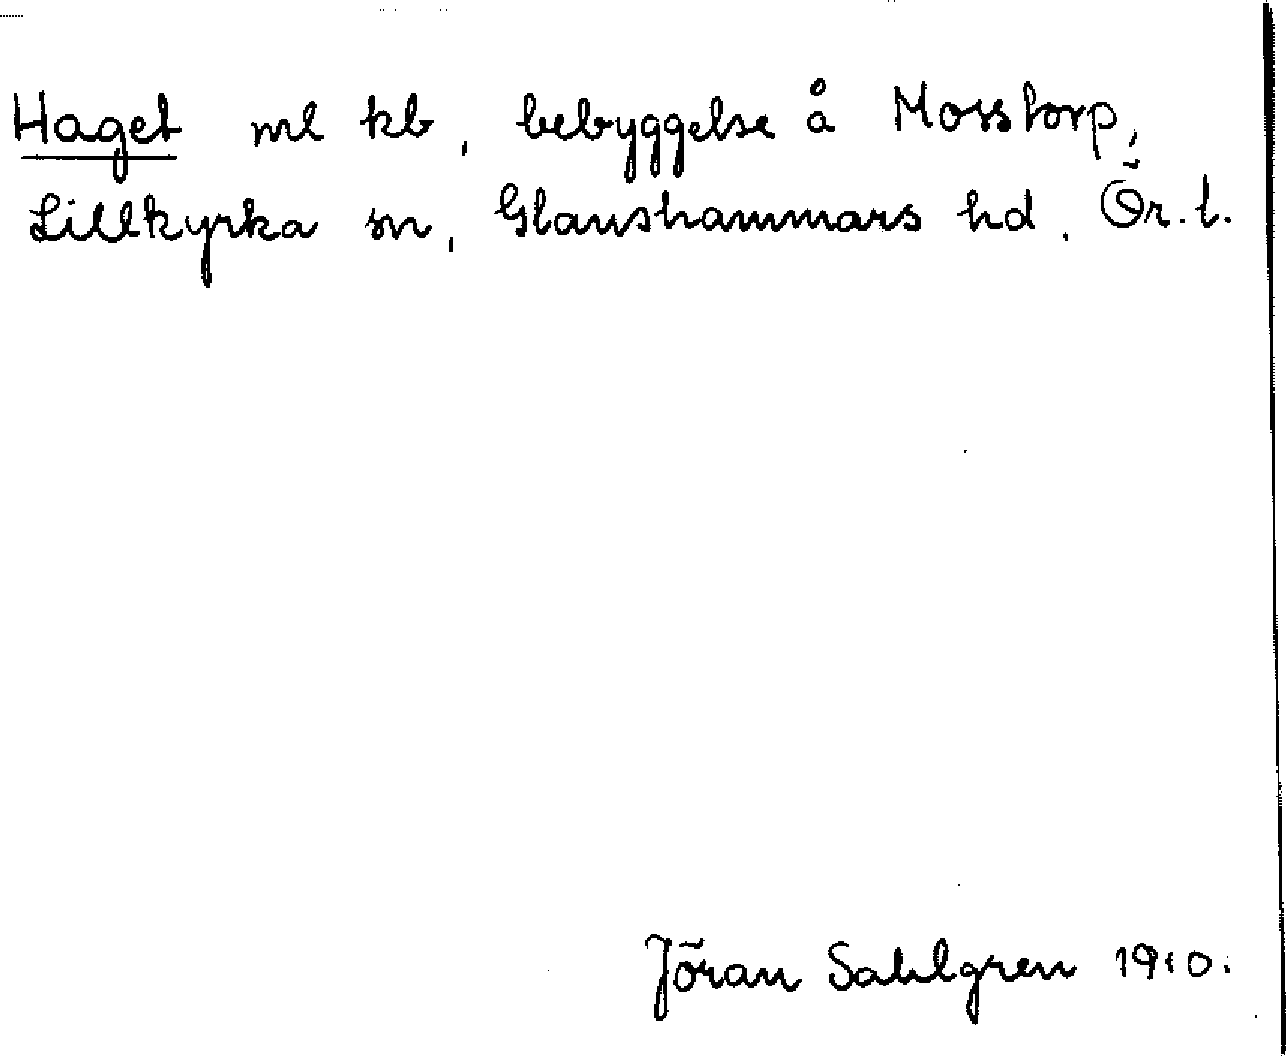 Haget ml kb, bebyggelse å Mosstorp,
Lillkyrka sn, Glanshammars hd, Ör. l.
Jöran Sahlgren 1910.